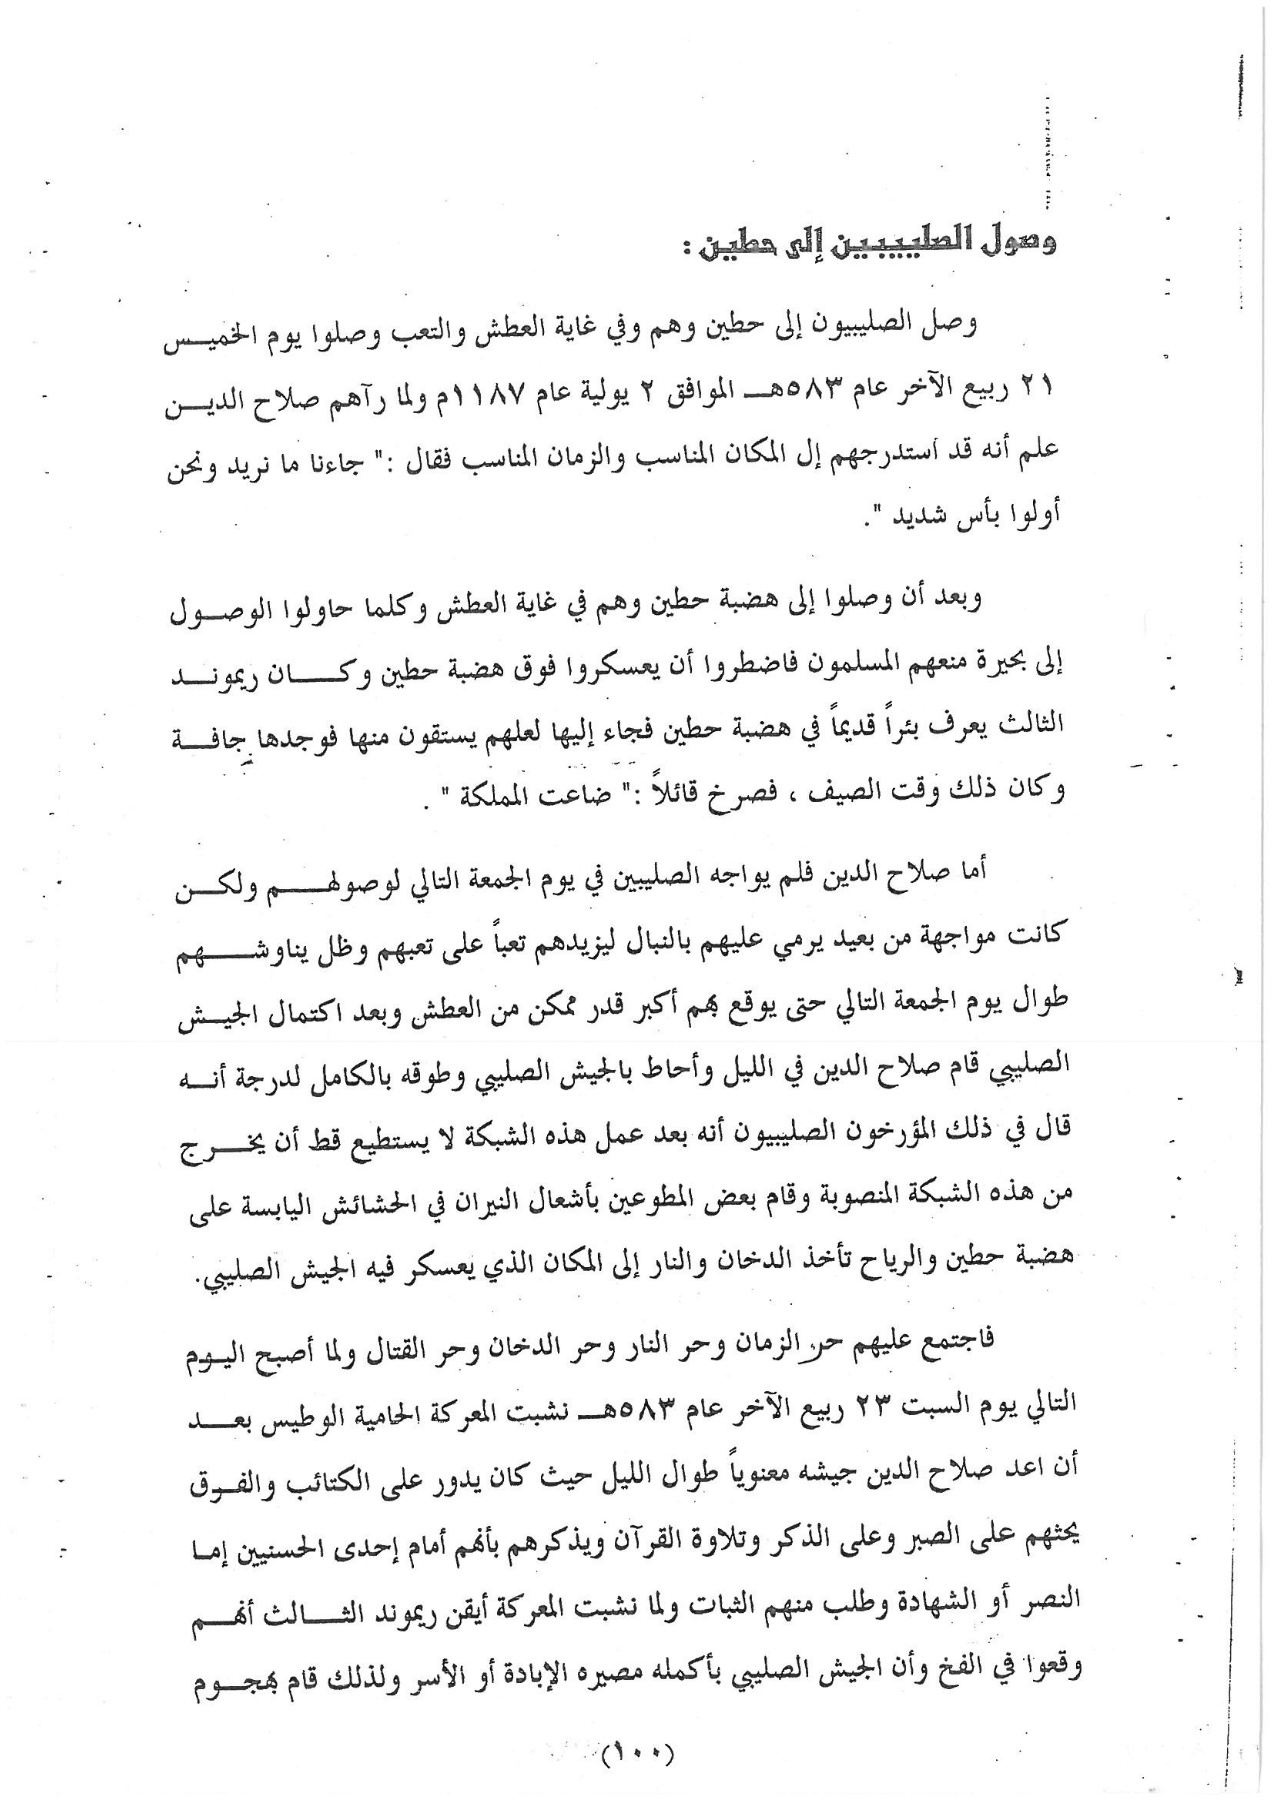 وصول الصليبيين إلى حطين :
وصل الصليبيون إلى حطين وهم وفي غاية العطش والتعب وصلوا يوم الخميس
٢١ ربيع الآخر عام ٥٨٣هـ الموافق ٢ يولية عام ١١٨٧م ولما رآهم صلاح الدين
علم أنه قد استدرجهم إل المكان المناسب والزمان المناسب فقال :" جاءنا ما نريد ونحن
أولوا بأس شديد ".
وبعد أن وصلوا إلى هضبة حطين وهم في غاية العطش وكلما حاولوا الوصول
إلى بحيرة منعهم المسلمون فاضطروا أن يعسكروا فوق هضبة حطين وكان ريموند
الثالث يعرف بئراً قديماً في هضبة حطين فجاء إليها لعلهم يستقون منها فوجدها جافة
وكان ذلك وقت الصيف ، فصرخ قائلاً :" ضاعت المملكة " .
أما صلاح الدين فلم يواجه الصليبين في يوم الجمعة التالي لوصولهم ولكن
كانت مواجهة من بعيد يرمي عليهم بالنبال ليزيدهم تعباً على تعبهم وظل يناوشهم
طوال يوم الجمعة التالي حتى يوقع بهم أكبر قدر ممكن من العطش وبعد اكتمال الجيش
الصليبي قام صلاح الدين في الليل وأحاط بالجيش الصليبي وطوقه بالكامل لدرجة أنه
قال في ذلك المؤرخون الصليبيون أنه بعد عمل هذه الشبكة لا يستطيع قط أن يخرج
من هذه الشبكة المنصوبة وقام بعض المطوعين بأشعال النيران في الحشائش اليابسة على
هضبة حطين والرياح تأخذ الدخان والنار إلى المكان الذي يعسكر فيه الجيش الصليبي.
فاجتمع عليهم حر الزمان وحر النار وحر الدخان وحر القتال ولما أصبح اليوم
التالي يوم السبت ٢٣ ربيع الآخر عام ٥٨٣هـ نشبت المعركة الحامية الوطيس بعد
أن اعد صلاح الدين جيشه معنوياً طوال الليل حيث كان يدور على الكتائب والفرق
يحثهم على الصبر وعلى الذكر وتلاوة القرآن ويذكرهم بأنهم أمام إحدى الحسنيين إما
النصر أو الشهادة وطلب منهم الثبات ولما نشبت المعركة أيقن ريموند الثالث أنهم
وقعوا في الفخ وأن الجيش الصليبي بأكمله مصيره الإبادة أو الأسر ولذلك قام بهجوم
(١٠٠)